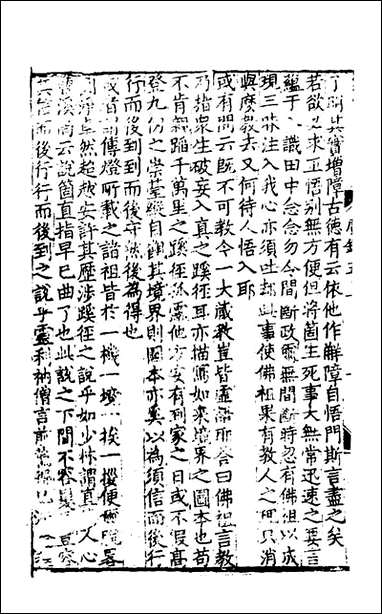 了明其實增障古德有云依他作解障自悟門斯言盡之矣
若欲必求正悟別無方便但將箇生死事大無常迅速之要言
蘊于八識田中念念勿令間斷政爾無間斷時忽有佛祖以成
現三昧注入我心亦須吐却此事使佛祖果有教人之理只消
與麼教去又何待人悟入耶
或有問云既不可教今一大藏教豈皆虛語耶答曰佛祖言教
乃指衆生破妄入真之蹊徑耳亦描寫如來境界之圖本也苟
不肯親踊千萬里之蹊徑孤露他方安有到家之日或不假高
登九仞之崇臺縱目蹈其境界則圖本亦奚以為須信而後行
行而後到到而後守然後為得也
或者問傳燈所載之諸祖皆於一機一境一挨一拶便
淨卓然超越安許其歷涉蹊徑之說乎如少林謂直 人心
曹溪尚云說箇直指早已曲了也此說之下間不容髮 豈容
其信而後行行而後到之說乎靈利衲僧言前薦